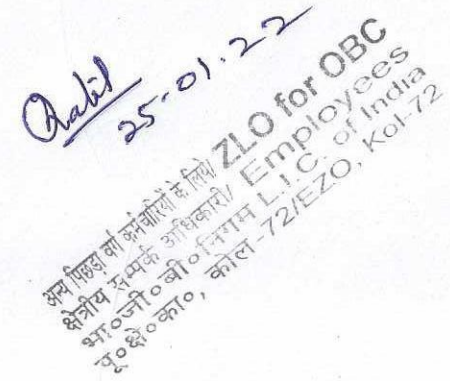 25-01-22
अन्य पिछड़ा वर्ग कर्मचारियों के लिये/ ZLO for OBC
क्षेत्रीय सम्पर्क अधिकारी/ Employees
भा०जी०बी०निगम L.I.C. of India
पू०क्षे०का०, कोल-72/EZO, Kol-72